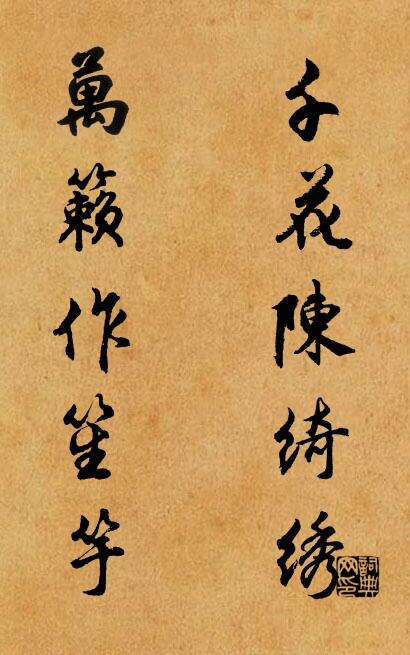 千花陳綺綉
萬籟作笙竽
詞典網印